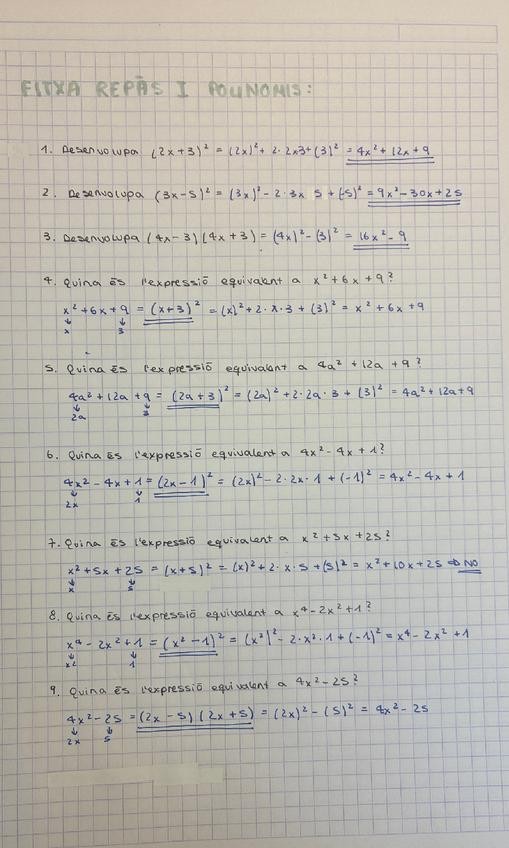 FITXA REPÀS I POLINOMIS:
1. Desenvolupa (2x+3)² = (2x)² + 2·2x3+(3)² = 4x² + 12x + 9
2. Desenvolupa (3x-5)² = (3x)² - 2·3x 5 + (-5)² = 9x² - 30x + 25
3. Desenvolupa (4x-3)(4x+3) = (4x)² - (3)² = 16x² - 9
4. Quina és l'expressió equivalent a x² + 6x + 9?
x² + 6x + 9 = (x+3)² = (x)² + 2·x·3 + (3)² = x² + 6x + 9
↓ ↓
x 3
5. Quina és l'expressió equivalent a 4a² + 12a + 9?
4a² + 12a + 9 = (2a+3)² = (2a)² + 2·2a·3 + (3)² = 4a² + 12a + 9
↓ ↓
2a 3
6. Quina és l'expressió equivalent a 4x² - 4x + 1?
4x² - 4x + 1 = (2x-1)² = (2x)² - 2·2x·1 + (-1)² = 4x² - 4x + 1
↓ ↓
2x 1
7. Quina és l'expressió equivalent a x² + 5x + 25?
x² + 5x + 25 = (x+5)² = (x)² + 2·x·5 + (5)² = x² + 10x + 25 ⇒ NO
↓ ↓
x 5
8. Quina és l'expressió equivalent a x⁴ - 2x² + 1?
x⁴ - 2x² + 1 = (x² - 1)² = (x²)² - 2·x²·1 + (-1)² = x⁴ - 2x² + 1
↓ ↓
x² 1
9. Quina és l'expressió equivalent a 4x² - 25?
4x² - 25 = (2x - 5)(2x + 5) = (2x)² - (5)² = 4x² - 25
↓ ↓
2x 5